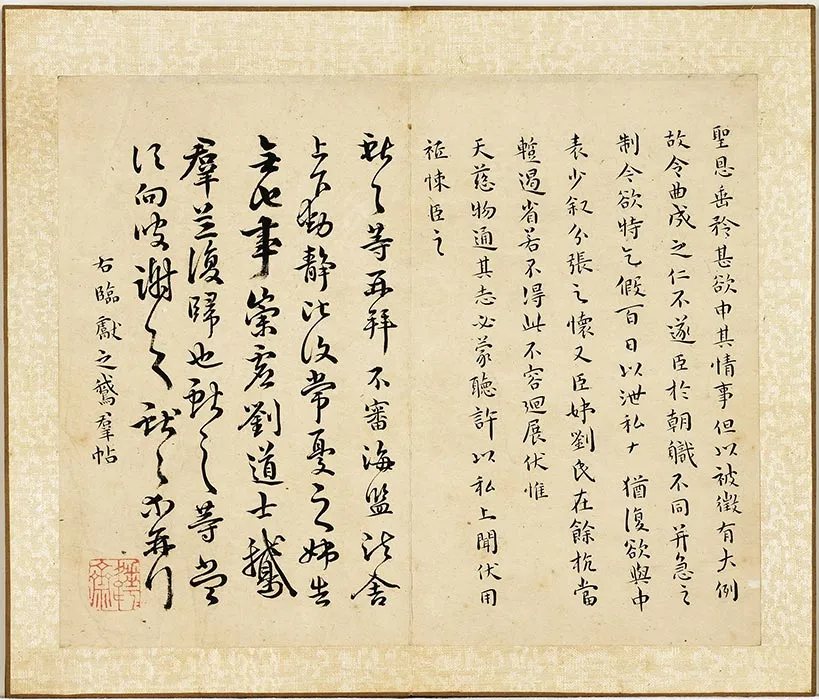 聖恩垂矜甚欲申其情事但以被徵有大例
故令曲成之仁不遂臣於朝職不同并急之
制今欲特乞假百日以泄私寸猶復欲與中
表少叙分張之懷又臣姊劉氏在餘杭當
輒過省若不得此不容迴展伏惟
天慈物通其志必蒙聽許以私上聞伏用
祗悚臣之
獻之等再拜不審海鹽諸舍
上下動靜比復常憂之姊告
無他事崇虛劉道士鵝
羣並復歸也獻之等當
須向彼謝之獻之等再拜
右臨獻之鵞羣帖